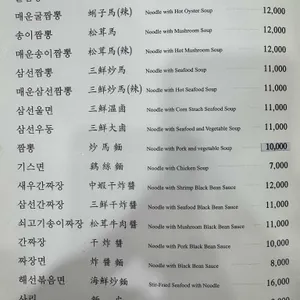 매운굴짬뽕 蜊子馬(辣) Noodle with Hot Oyster Soup 12,000
송이짬뽕 松茸馬 Noodle with Mushroom Soup 12,000
매운송이짬뽕 松茸馬(辣) Noodle with Hot Mushroom Soup 12,000
삼선짬뽕 三鮮炒馬 Noodle with Seafood Soup 11,000
매운삼선짬뽕 三鮮炒馬(辣) Noodle with Hot Seafood Soup 11,000
삼선울면 三鮮溫鹵 Noodle with Corn Strach Seafood Soup 11,000
삼선우동 三鮮大鹵 Noodle with Seafood and Vegetable Soup 11,000
짬뽕 炒馬麵 Noodle with Pork and vegetable Soup 10,000
기스면 鷄絲麵 Noodle with Chicken Soup 7,000
새우간짜장 中蝦干炸醬 Noodle with Shrimp Black Bean Sauce 12,000
삼선간짜장 三鮮干炸醬 Noodle with Seafood Black Bean Sauce 11,000
쇠고기송이짜장 松茸牛肉醬 Noodle with Mushroom Black Bean Sauce 11,000
간짜장 干炸醬 Noodle with Pork Black Bean Sauce 10,000
짜장면 炸醬麵 Noodle with Black Bean Sauce 8,000
해선볶음면 海鮮炒麵 Stir-Fried Seafood with Noodle 16,000
사리